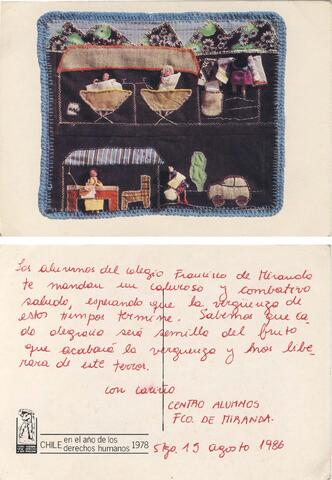 Los alumnos del colegio Francisco de Miranda
te mandan un caluroso y combativo
saludo, esperando que la verguenza de
estos tiempos termine. Sabemos que ca
da desgracia será semilla del fruto
que acabará la verguenza y nos libe
rara de este terror.
con cariño
CENTRO ALUMNOS
FCO. DE MIRANDA.
Stgo. 15 agosto 1986
CHILE en el año de los derechos humanos 1978